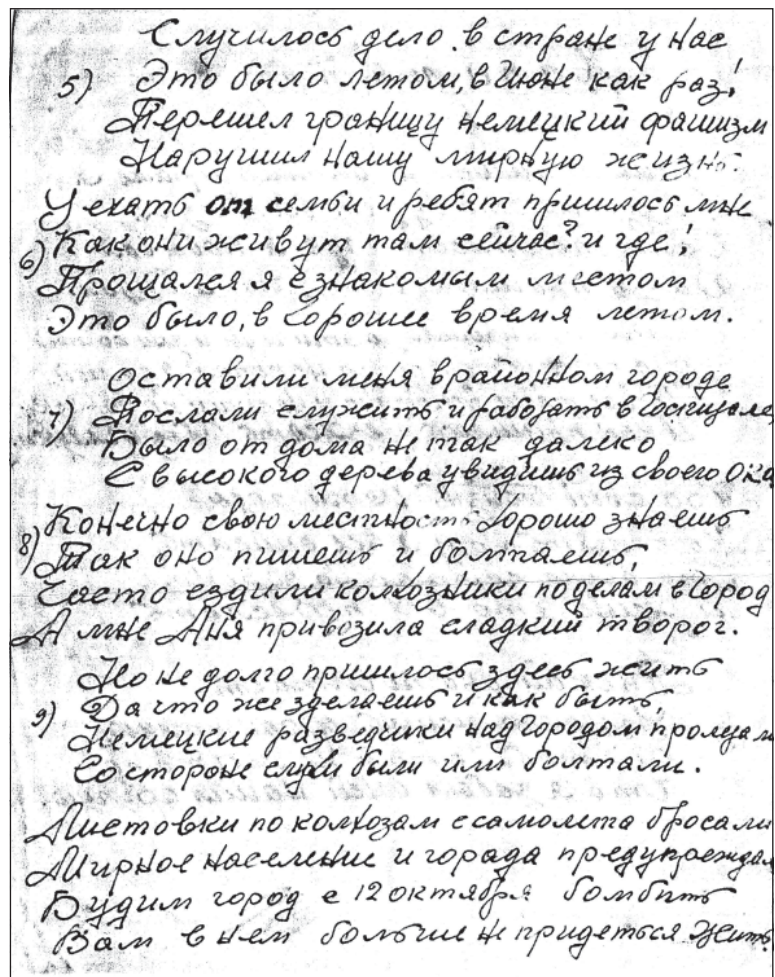 Случилось дело в стране у нас
5) Это было летом, в Июне как раз!
Перешел границу немецкий фашизм
Нарушил нашу мирную жизнь.
Уехать от семьи и ребят пришлось мне
6) Как они живут там сейчас? и где!
Прощался я с знакомым местом
Это было, в хорошее время летом.
Оставили меня в районном городе
7) Послали служить и работать в госпитале,
Было от дома не так далеко
С высокого дерева увидишь из своего ока
Конечно свою местность хорошо знаешь
8) Так оно пишешь и болтаешь,
Часто ездили колхозники по делам в город
А мне Аня привозила сладкий творог.
Но не долго пришлось здесь жить
9) Да что же зделаешь и как быть,
Немецкие разведчики над городом пролетали
Со стороне слухи были или болтали.
Листовки по колхозам с самолета бросали
Мирное население и города предупреждали
Будим город с 12 октября бомбить
Вам в нем больше не придеться жить.